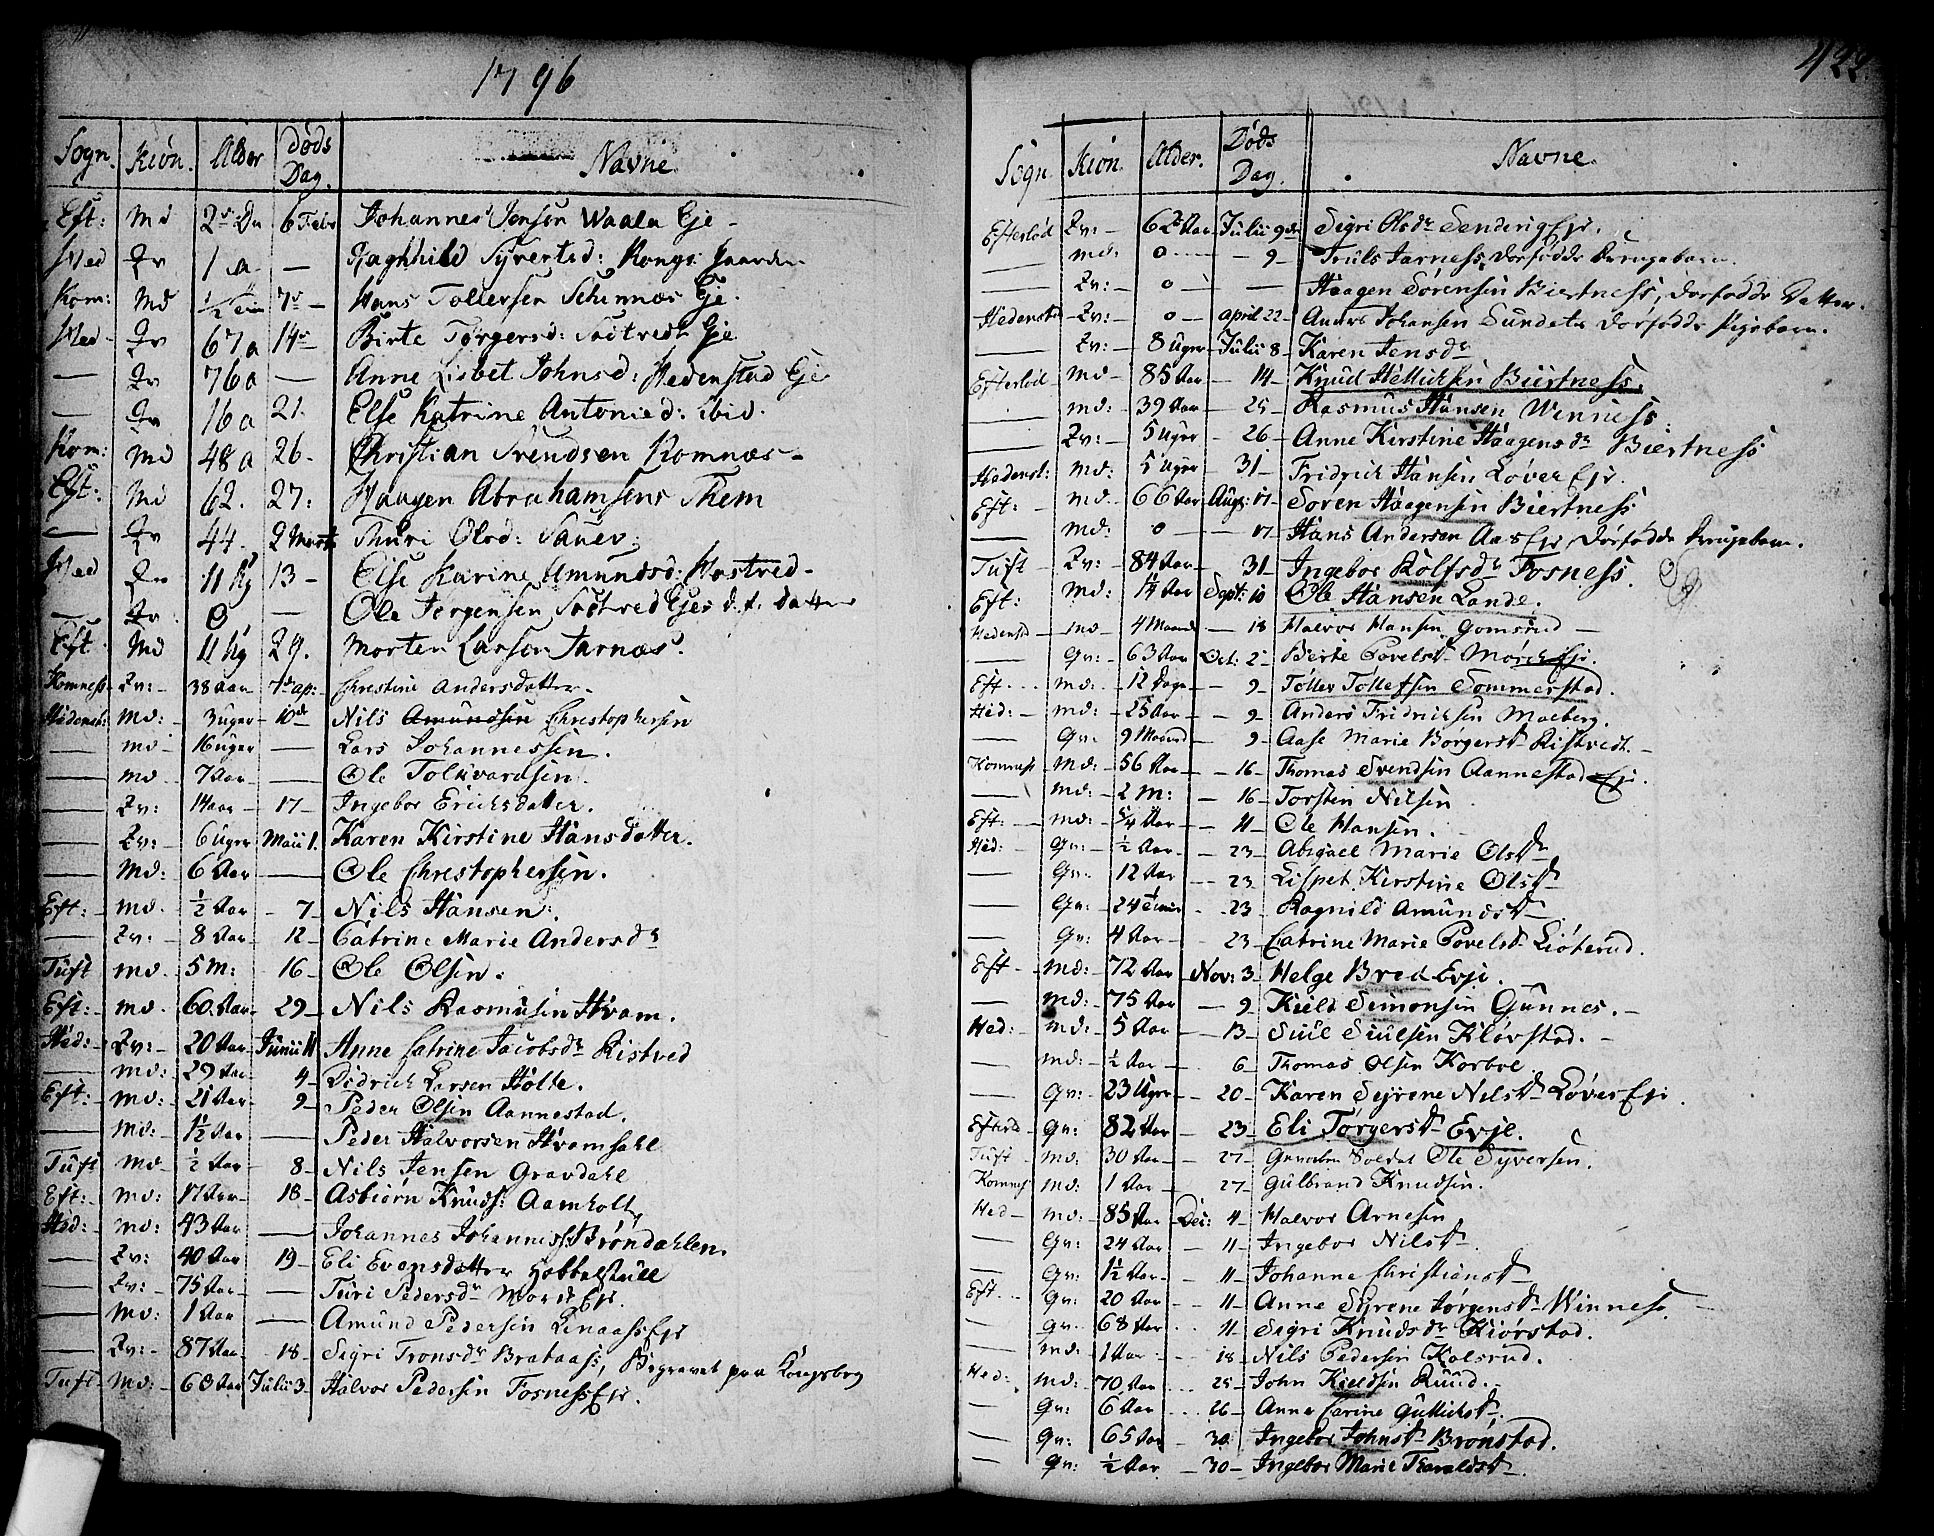 1796
Sogn. Kiøn. Alder Døds Dag. Navne
Eft: Md 6 Febr Johannes Jensen Waala Eje -
Hed Qv 1 a — Raghhild Syvertsd: Kongsgaarden
Kom: Md 7de - Hans Tollefsen Eje.
Hed - Qv 67 a 14de Birte Torgersd: Eje
— Qv 76 a — Anne Lisbet Johnsd: Hedenstad Eje
— Qv 16 a 21. Else Katrine Antonied: ibid.
Kom: Md 48 a 26. Christian Svendsen Komnæs -
Eft: Md 62. 27: Haagen Abrahamsens Them
— Qv 44. 2 Marts Thuri Olsd: Sauev:
Hed Qv 11 Ug 13 - Else Karine Amundsd: Hostved -
— Qv 0 — Ole Jorgensen Ejes d. f. datter
Eft Md 11 Ug 29. Morten Larsen Jarnæs.
Komness - Qv: - 38 aar - 7de ap: - Christine Andersdatter -
Hedenst: Md: - 3 uger - 10de Nils Amundsen Christophersen
— md - 16 uger — Lars Johannessen.
— md - 7 Aar — Ole Tolkvardsen.
— Qv: - 14 aar - 17 - Ingebor Erichsdatter.
— Qv: - 6 uger Maii 1. Karen Kirstine Hansdatter.
— Md: - 6 Aar — Ole Christophersen.
Eft: - md. - ½ Aar - 7 - Nils Hansen.
— Qv: - 8 Aar - 12 - Catrine Marie Andersdr
Tuft md. 5 m: - 16 - Ole Olsen.
Eft: - md. 60 Aar - 29 - Nils Rasmusen Hvam.
Hed: - Qv: - 20 Aar Junii 11 Anne Catrine Jacobsdr Ristved
— md: - 29 Aar 4 - Didrich Larsen Holte.
Eft: - md: - 21 Aar - 9 - Peder Olsen Aannestad.
— md: - 1½ Aar — Peder Halvorsen Hvamsahl
Tuft md - ½ Aar - 8 - Nils Jensen Gravdahl
Eft: - md: - 17 Aar - 18 - Asbiørn Knuds: Aamholt
Hed: - md: - 43 Aar — Johannes Johanness: Brøndahlen.
— Qv: 40 Aar 19 - Eli Evensdatter
— Qv: - 75 Aar - — Turi Pedersdr Morch Eje.
— md: - 1 Aar — Amund Pedersen Eje
— Qv: - 87 Aar - 18 - Sigri Tronsdr Brataass, Begravet paa Kongsberg
Tuft md: - 68 Aar Julii 3 - Halvor Pedersen Fosness Eje.
422
Sogn. Kiøn. Alder. Døds Dag. Navne.
Efterlød Qv: - 62 Aar Julii 9de Sigri Olsdr Eje.
— md: 0 - 9 - Truls Jarness, dødfødde Drengebarn.
— Qv: - 0 — Haagen Sørensen Biertness, dødfødde Datter.
Hedenstd Qv: - 0 - april 22 - Anders Johansen Sundets dødfødde Pigebarn.
— Qv: - 8 uger - Julii 8 - Karen Jensdr
Efterlød - md - 85 Aar - 14 - Knud Biertness.
— md: - 39 Aar - 25 - Rasmus Hansen Winness.
— Qv: - 5 uger - 26 - Anne Kirstine Haagensdr Biertness
Hedenst: md: - 5 uger - 31 - Fridrich Hansen Løver Eje.
Eft: - md - 66 Aar Aug: 17 - Soren Haagensen Biertness
— md: 0 - 17 - Hans Andersen Aas Eje dødfødde Drengebarn.
Tuft - Qv: - 84 Aar - 31 - Ingebor Rolfsdr Fosness.
Eft: md: - 1½ Aar Sept: 10 Ole Hansen Lande.
Hedensd - md - 4 Maaned - 18 Halvor Hansen Gomsrud -
— Qv: - 63 Aar Oct: 2 - Berte Povelsdr Mørch Eje.
Eft. md: - 12 Dage - 9 - Tollev Tollefsen Sommerstad.
Hed: - md: - 25 Aar - 9 - Anders Fridrichsen Moeberg.
— Qv: 9 Maaned - 9 - Aase Marie Børgersdr Ristvedt. -
Komness - md: - 56 Aar - 16 - Thomas Svendsen Aannestad Eje.
— md: - 2 m: - 16 - Torsten Nilsen
Eft: - md: - 5/4 Aar - 11 - Ole Hansen.
Hed: - Qv: - ½ Aar - 23 - Abigael Marie Olsdr
— Qv: 12 Aar - 23 Lispet Kirstine Olsdr
— Qv: - 24 Timer - 23 - Ragnild Amundsdr
— Qv: 4 Aar - 23 - Catrine Marie Povelsdr Liøterud.
Eft md: - 72 Aar - Nov: 3 - Helge Bred Evje.
— md: - 75 Aar - 9 - Kield Simonsen Gunnes. -
Hed: - md: - 5 Aar - 13 - Siul Siulsen Kløvstad. -
— md: ½ Aar - 6 - Thomas Olsen Korboe.
— Qv: - 23 Uger - 20 - Karen Syrene Nilsdr Løver Eje.
Qv: 82 Aar - 23 - Eli Torgersdr Evje.
Tuft md: 30 Aar - 27 - Soldat Ole Syversen.
Komnes md: 1 Aar - 27 - Gulbrand Knudsen.
Hed - md: - 85 Aar Dec: 4 - Halvor Arnesen
— Qv: - 24 Aar - 11 - Ingebor Nilsdr
— Qv: - 1½ Aar - 11 - Johanne Christiansdr
Eft - Qv: 20 Aar - 11 - Anne Syrene Jørgensdr Winness.
— Qv: 68 Aar 11 - Sigri Knudsdr Kiørstad.
— md: - 1 Aar - 18 - Nils Pedersen Kolsrud.
Hed: md: 70 Aar 25 - John Kieldsen Ruud. -
— Qv: 6 Aar 26 - Anne Carine Gullichsdr.
— Qv: 65 Aar - 30 - Ingebor Johnsdr Brønstad.
— Qv: ½ Aar - 30 - Ingebor Marie Thoraldsdr.